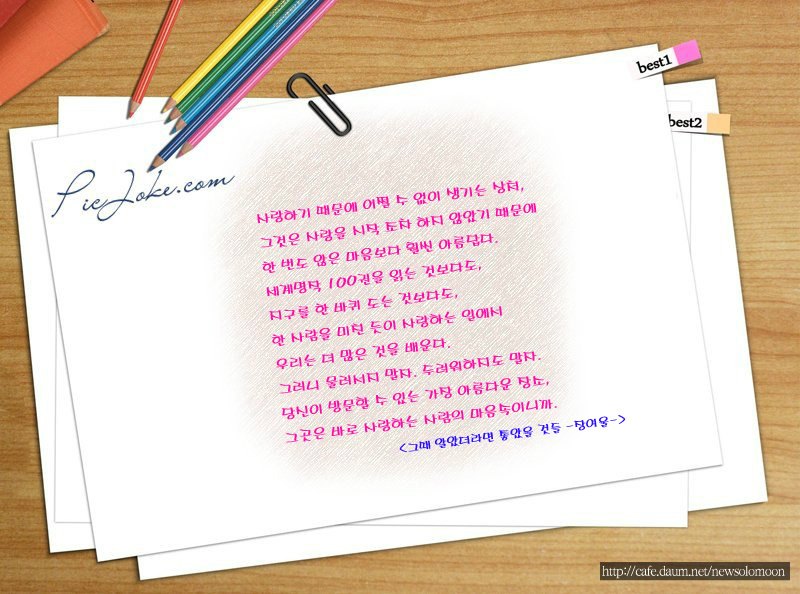 best1
best2
PicJoke.com
사랑하기 때문에 어쩔 수 없이 생기는 상처,
그것은 사랑을 시작 조차 하지 않았기 때문에
한 번도 않은 마음보다 훨씬 아름답다.
세계명작 100권을 읽는 것보다도,
지구를 한 바퀴 도는 것보다도,
한 사람을 미친 듯이 사랑하는 일에서
우리는 더 많은 것을 배운다.
그러니 물러서지 말자. 두려워하지도 말자.
당신이 방문할 수 있는 가장 아름다운 장소,
그곳은 바로 사랑하는 사람의 마음속이니까.
<그때 알았더라면 좋았을 것들 -장여울->
http://cafe.daum.net/newsolomoon